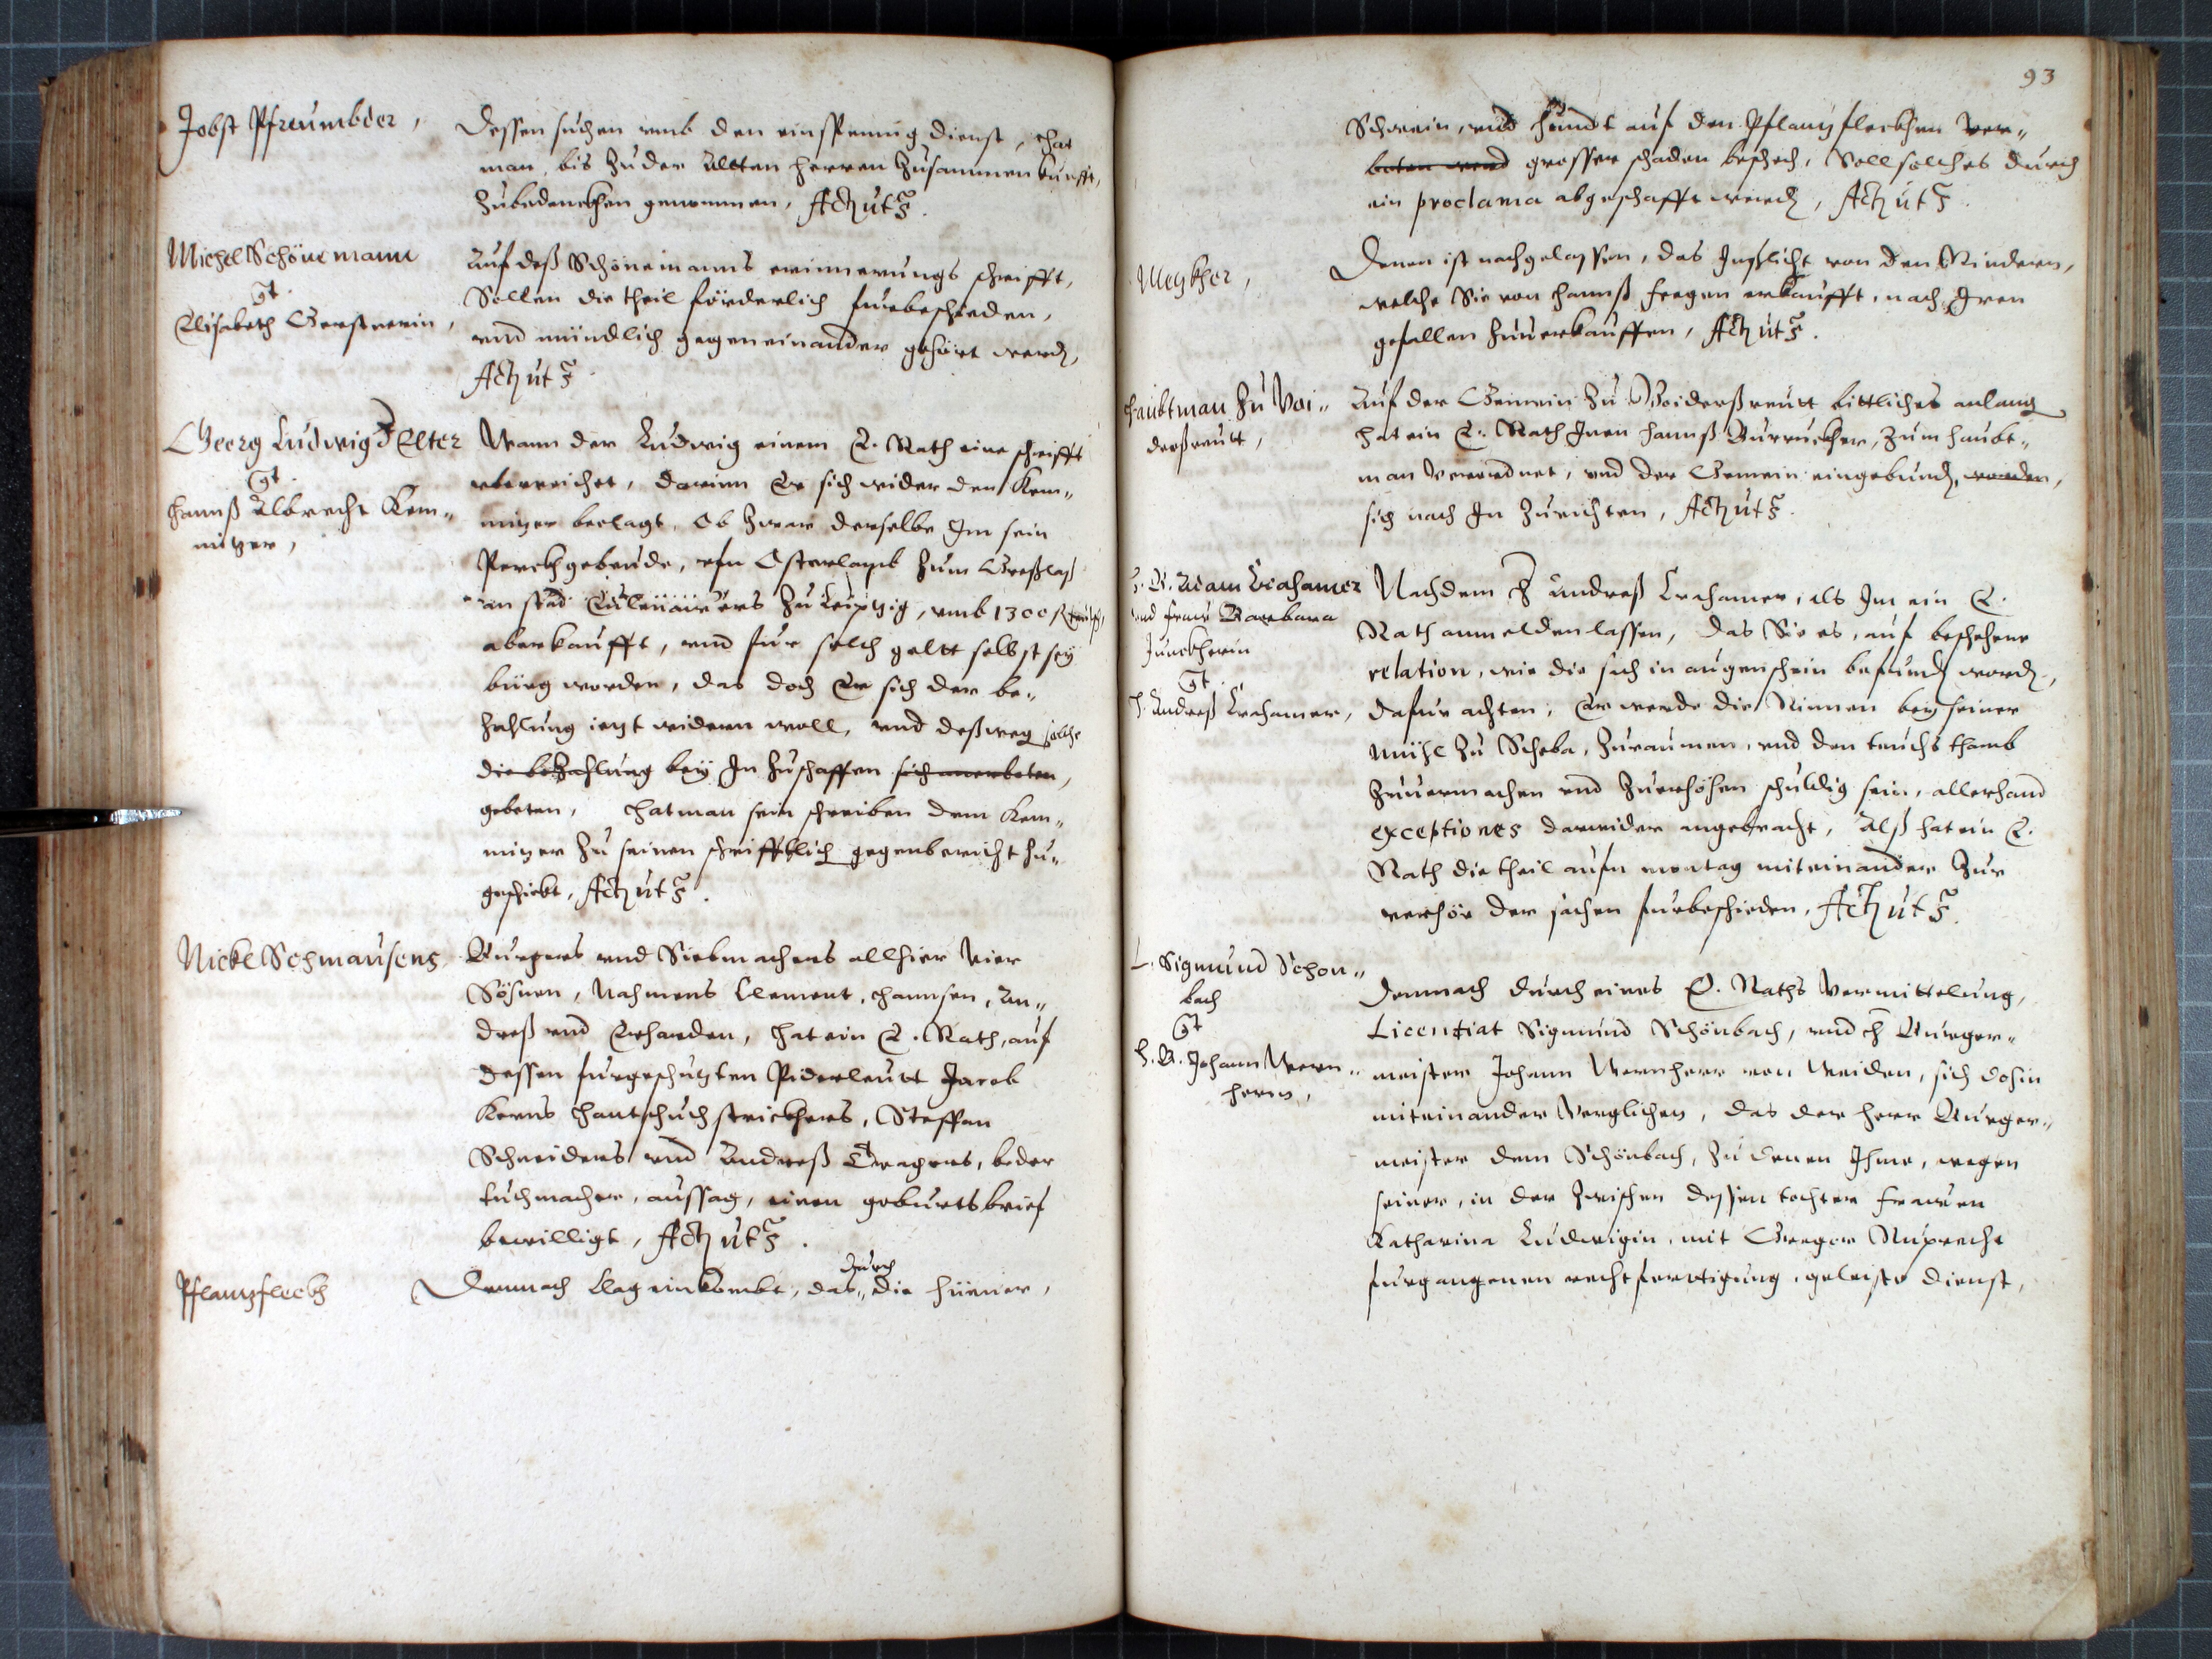 Jobst Pfreumbder,
Dessen suchen vmb den einspennig dienst, hat
man, bis zu der Alten herren zusammenkunfft,
zubedenckhen genommen, Act. ut s.
Michel Schönemann
Ct.
Elisabeth Gerstnerin,
Auf deß Schönemanns erinnerungs schrifft,
Sollen die theil förderlich furbeschieden,
vnd mündlich gegeneinander gehört werd,
Act. ut s.
Georg Ludwig d Elter
Ct.
Hannß Albrecht Kem„
nitzer,
Wann der Ludwig einem E. Rath eine schrifft
vberreichet, darinn Er sich wider den Kem„
nitzer beclagt, Ob zwar derselbe Im sein
Perckhgebeude, vfm Osterlamb zum Greßlaß
an stad zu Leiptzig, vmb 1300 f
aberkaufft, vnd fur solch geltt selbst sey
bürg worden, das doch Er sich der be„
zahlung ietzt widern woll, vnd deßweg solche
die bezahlung bey In zuschaffen sich anerboten,
gebeten, hat man sein schreiben dem Kem„
nitzer zu seinen schrifftlich gegenbericht zu„
geschickt, Act. ut s.
Nickl Schmausens
Burgers vnd Siebmachers allhier Vier
Söhnen, Nahmens Clement, Hannsen, An„
dreß vnd Erharden, hat ein E. Rath, auf
dessen furgeschutzten Piderleutt Jacob
Kerns Hantschuchstrickhers, Steffan
Schneiders vnd Andreß Tragers, beder
tuchmacher, aussag, einen geburtsbrief
bewilligt, Act. ut s.
Pflantzfleckh
Demnach Clag einkombt, das durch die hüener,
93
Schwein, vnd hundt auf den Pflantzfleckhen ver„
boten werd grosser schaden beschech, Soll solches durch
ein proclama abgeschafft werd, Act. ut s.
Metzkher,
Denen ist nachgelassen, das Inßlicht von den Rindern,
welche Sie von Hannß Fregen erkaufft, nach Iren
gefallen zuuerkauffen, Act. ut s.
Haubtman zu Voi„
derßreutt,
Auf der Gemein zu Voiderßreutt bittliches anlang
hat ein E. Rath Inen Hannß Burruckher, zum haubt„
man Verordnet, vnd der Gemein eingebund, worden,
sich nach In zurichten, Act. ut s.
H. B. Adam Crahamer
vnd Fraw Barbara
Junckherin
Ct.
H. Andreß Crahamer,
Nachdem H Andreß Crahamer, als Im ein E.
Rath anmelden lassen, das Sie es, auf beschehene
relation, wie die sach in augenschein befund word,
dafur achten, Er werde die Rinnen bey seiner
mühl zu Scheba, zuraumen, vnd den teuchs thamb
zuuermachen vnd zuerhöhen schuldig sein, allerhand
exceptiones darwider angebracht, Alß hat ein E.
Rath die theil aufm montag miteinander zur
verhör der sachen furbeschieden, Act. ut s.
L. Sigmund Schon„
bach
Ct
H. B. Johann Wern„
herrn,
Demnach durch eines E. Raths Vermittelung,
Licentiat Sigmund Schönbach, vnd H Burger„
meister Johann Wernherr von Weiden, sich dohin
miteinander Verglichen, das der herr Burger„
meister dem Schönbach, zu denen Ihme, wegen
seiner, in der zwischen dessen tochter Frawen
Katharina Ludwigin, mit Gregor Ruprecht
furgangenen rechtfertigung, geleiste dienst,